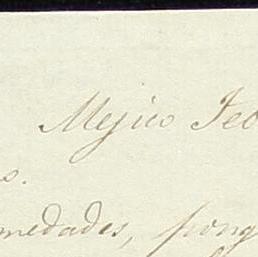 Mejico Feb
s.
medades, pong